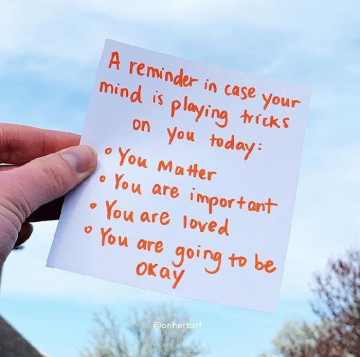 A reminder in case your
mind is playing tricks
on you today:
• You Matter
• You are important
• You are loved
• You are going to be
okay
@onhersurf